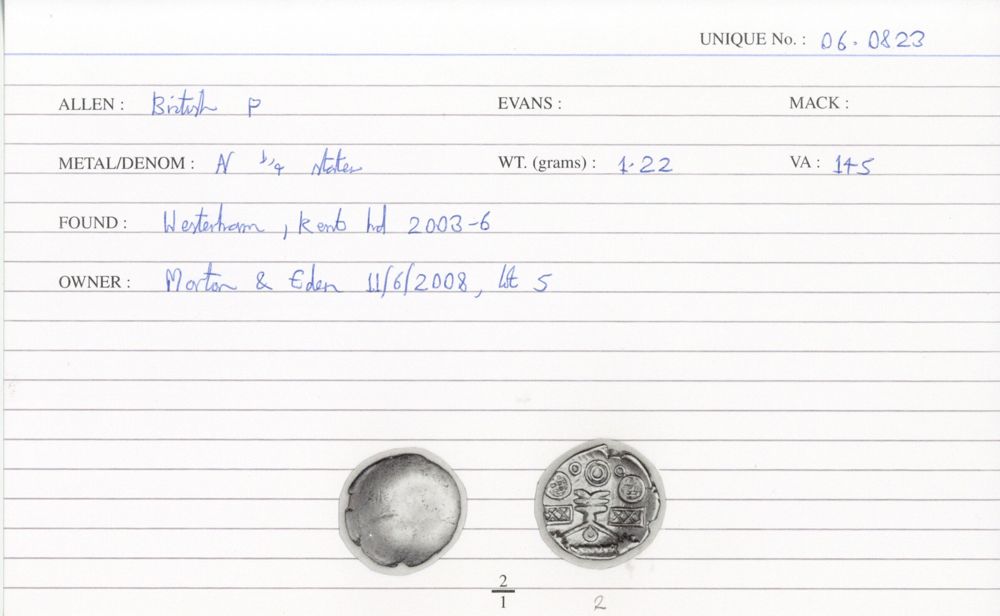 UNIQUE No. : 06.0823
ALLEN : British P EVANS : MACK :
METAL/DENOM : N 1/4 stater WT. (grams) : 1.22 VA : 145
FOUND : Westerham, Kent hd 2003-6
OWNER : Morton & Eden 11/6/2008, lot 5
2
1
2